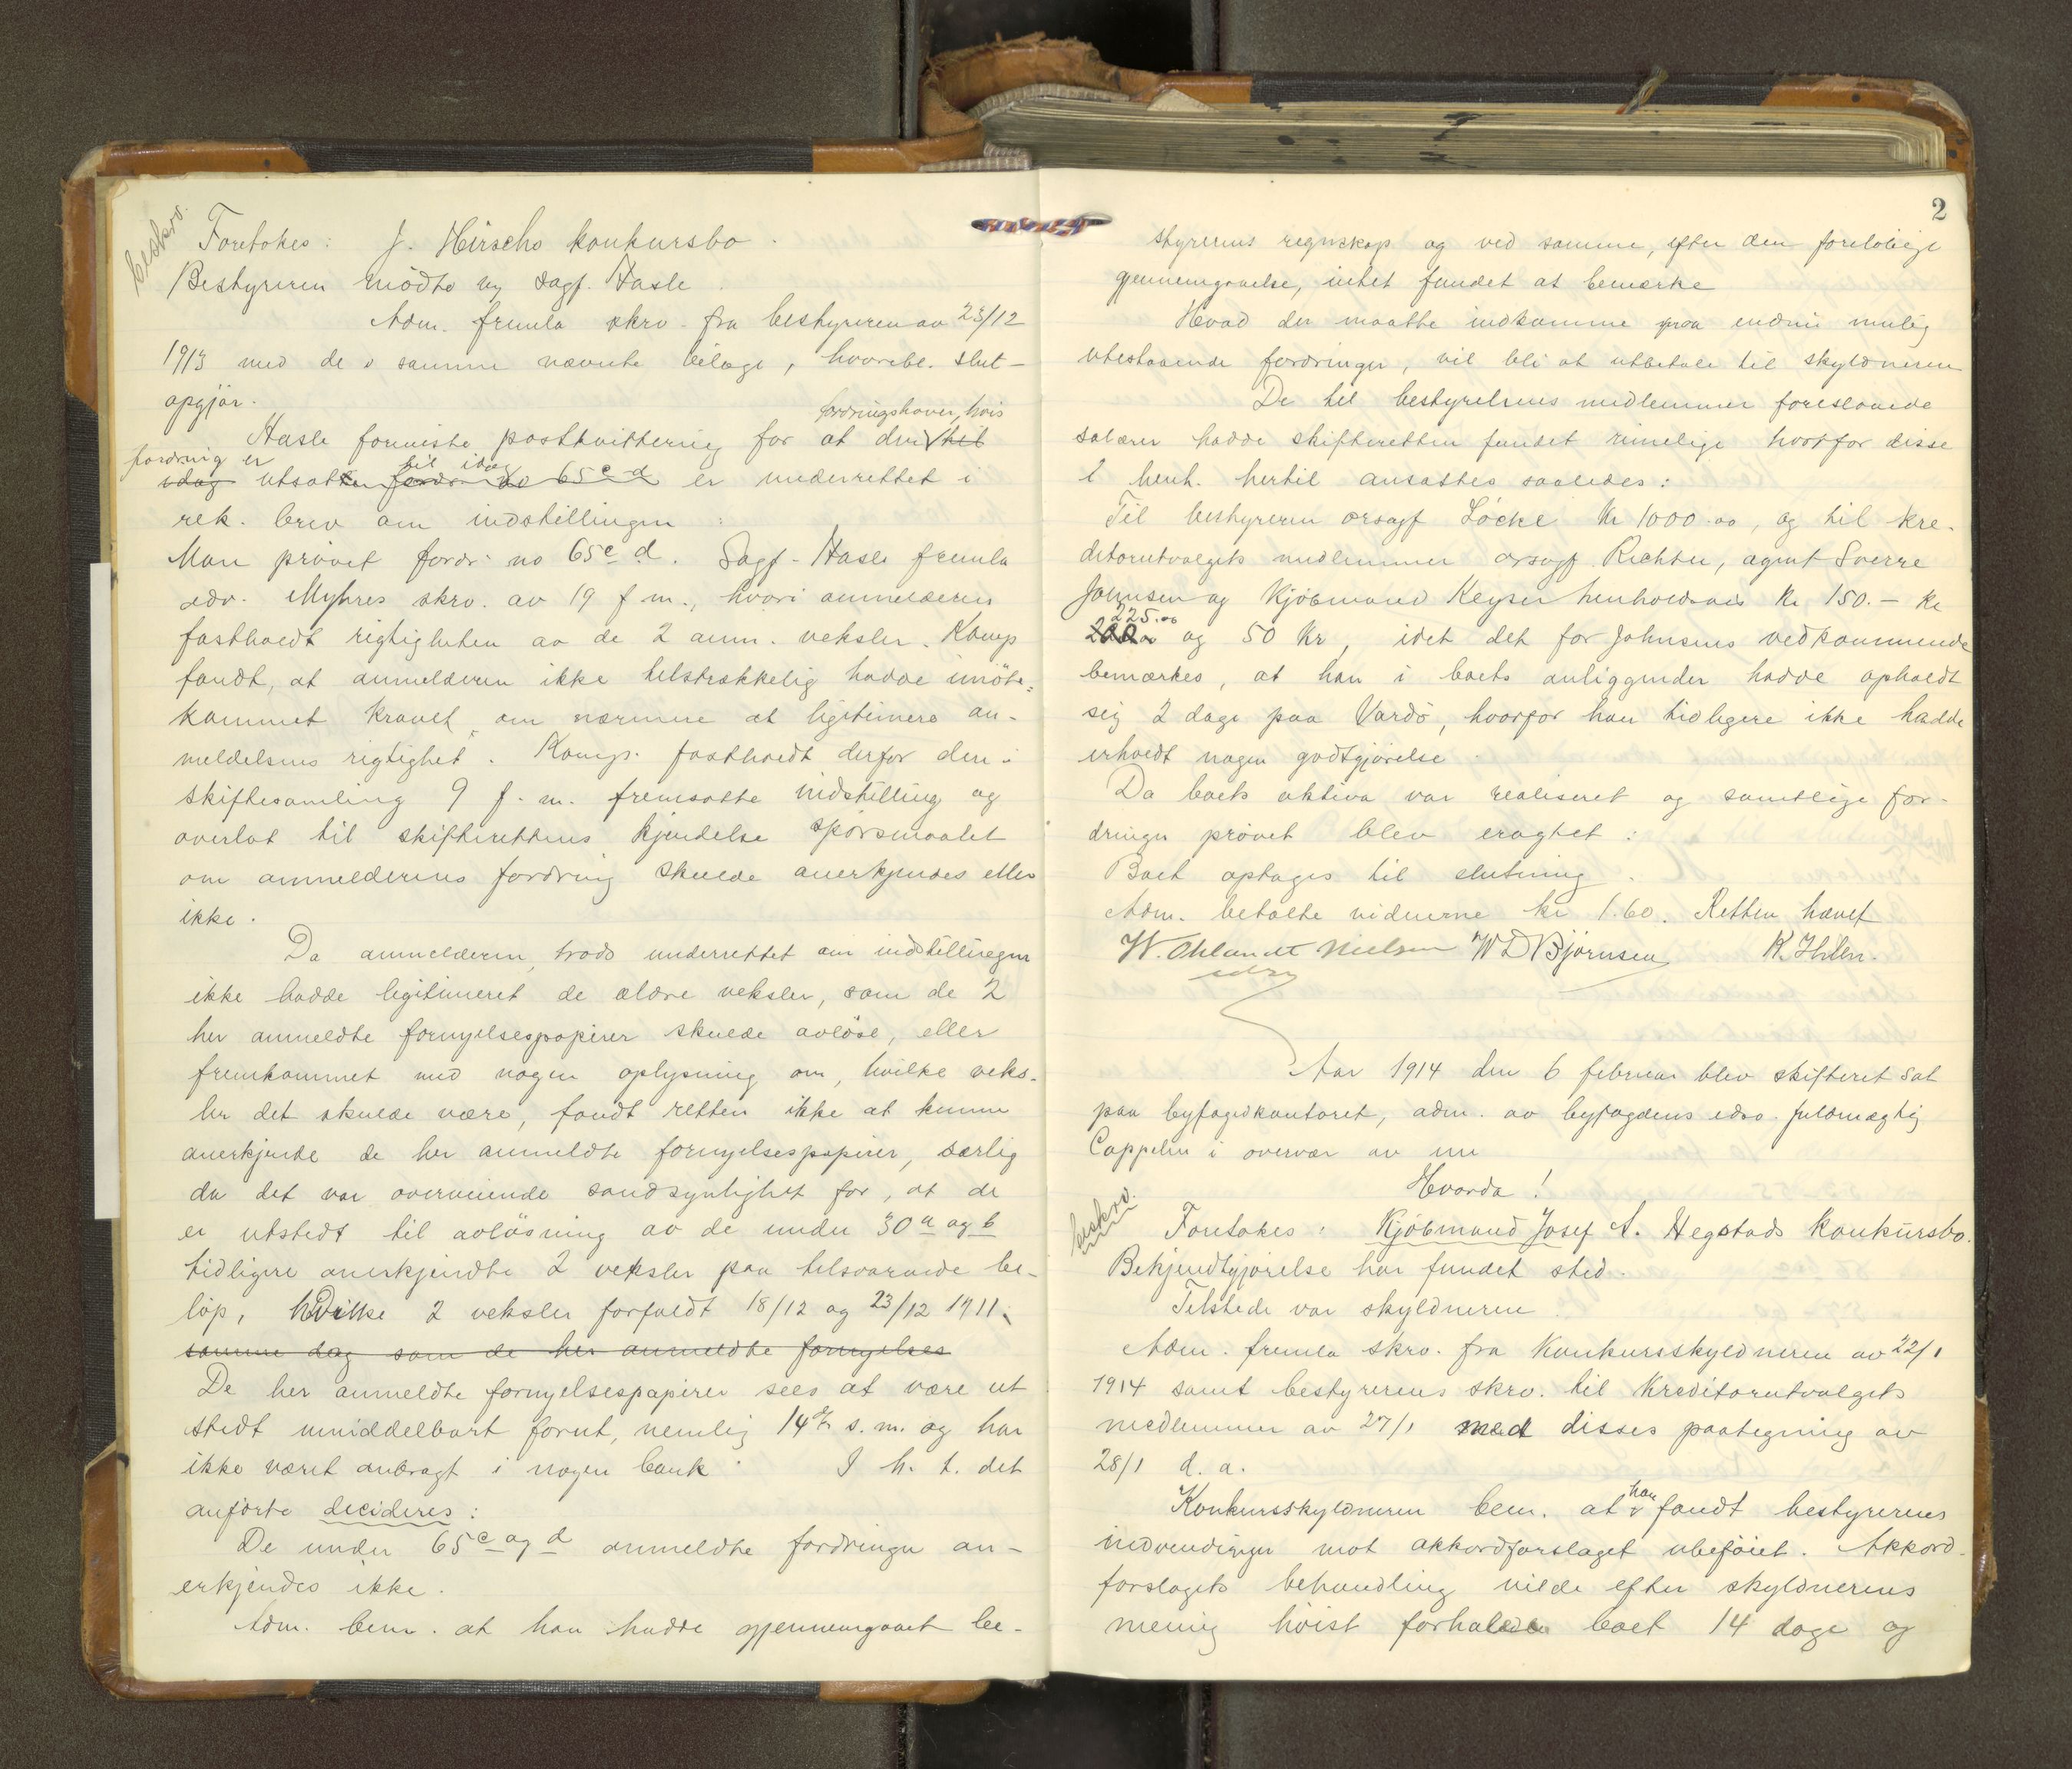 beskrv.
Foretokes: J. Hirschs konkursbo.
Bestyreren mödte ny sagf. Hasle.
Adm. fremla skrv. fra bestyreren av 23/12
1913 med de i samme nævnte bilage, hvoribl. slut-
opgjör.
fordringshaver, hvis
Hasle foreviste postkvittering for at den til
fordring er til idag
idag utsatte fordr no 65 c d er underrettet i
rek. brev om indstillingen:
Man prövet fordr. no 65 c d. Sagf. Hasle fremla
adv. Myhres skrv. av 19 f.m., hvori anmelderen
fastholdt rigtigheten av de 2 anm. veksler. Komp
fandt, at anmelderen ikke tilstrækkelig hadde imöte-
kommet kravet om nærmere at ligitimere an-
meldelsens rigtighet. Komp. fastholdt derfor den i
skiftesamling 9 f.m. fremsatte indstilling og
overlot til skifterettens kjendelse spörsmaalet
om anmelderens fordring skulde anerkjendes eller
ikke.
Da anmelderen, trods underrettet om indstillingen
ikke hadde legitimeret de ældre veksler, som de 2
her anmeldte fornyelsespapirer skulde avlöse, eller
fremkommet med nogen oplysning om, hvilke veks-
ler det skulde være, fandt retten ikke at kunne
anerkjende de her anmeldte fornyelsespapirer, særlig
da det var overveiende sandsynlighet for, at de
er utstedt til avlösning av de under 30 a og b
tidligere anerkjendte 2 veksler paa tilsvarende be-
löp, hvilke 2 veksler forfaldt 18/12 og 23/12 1911.
samme dag som de her anmeldte fornyelses
De her anmeldte fornyelsespapirer sees at være ut
stedt umiddelbart forut, nemlig 14de s.m. og har
ikke været anbragt i nogen bank. I h. t. det
anförte decideres:
De under 65 c og d anmeldte fordringer an-
erkjendes ikke.
Adm. bem. at han hadde gjennemgaaet be-
2
styrerens regnskap og ved samme, efter den foreløbige
gjennemgaaelse, intet fundet at bemærke
Hvad der maatte indkomme paa endnu mulig
utestaaende fordringer, vil bli at utbetale til skyldneren
De til bestyrelsens medlemmer foreslaaede
salærer hadde skifteretten fundet rimelige hvorfor disse
i henh. hertil ansattes saaledes:
Til bestyreren orsagf Löcke kr 1000.00, og til kre-
ditorutvalgets medlemmer orsagf. Richter, agent Sverre
Johnsen og Kjöbmand Keyser henholdsvis kr 150.- kr
225.00
200.00 og 50 kr, idet det for Johnsens vedkommende
bemærkes, at han i boets anliggender hadde opholdt
sig 2 dage paa Vardö, hvorfor han tidligere ikke hadde
erholdt nogen godtgjörelse.
Da boets aktiva var realiseret og samtlige for-
dringer prövet blev eragtet:
Boet optages til slutning.
Adm. betalte vidnerne kr 1.60. Retten hævet
W. Ohlandt Nielsen W D Bjørnsen K. Hilen.
edsv
Aar 1914 den 6 februar blev skifteret sat
paa byfogedkontoret, adm. av byfogdens edsv. fuldmægtig
Cappelen i overvær av un
Hvorda!
beskrv.
Foretokes: Kjöbmand Josef A. Hegstads konkursbo.
Bekjendtgjörelse har fundet sted.
Tilstede var skyldneren.
Adm. fremla skrv. fra konkursskyldneren av 22/1
1914 samt bestyrerens skrv. til kreditorutvalgets
medlemmer av 27/1 med disses paategning av
28/1 d. a.
han
Konkursskyldneren bem. at fandt bestyrerens
indvendinger mot akkordforslaget ubeföiet. Akkord-
forslagets behandling vilde efter skyldnerens
mening höist forhale boet 14 dage og